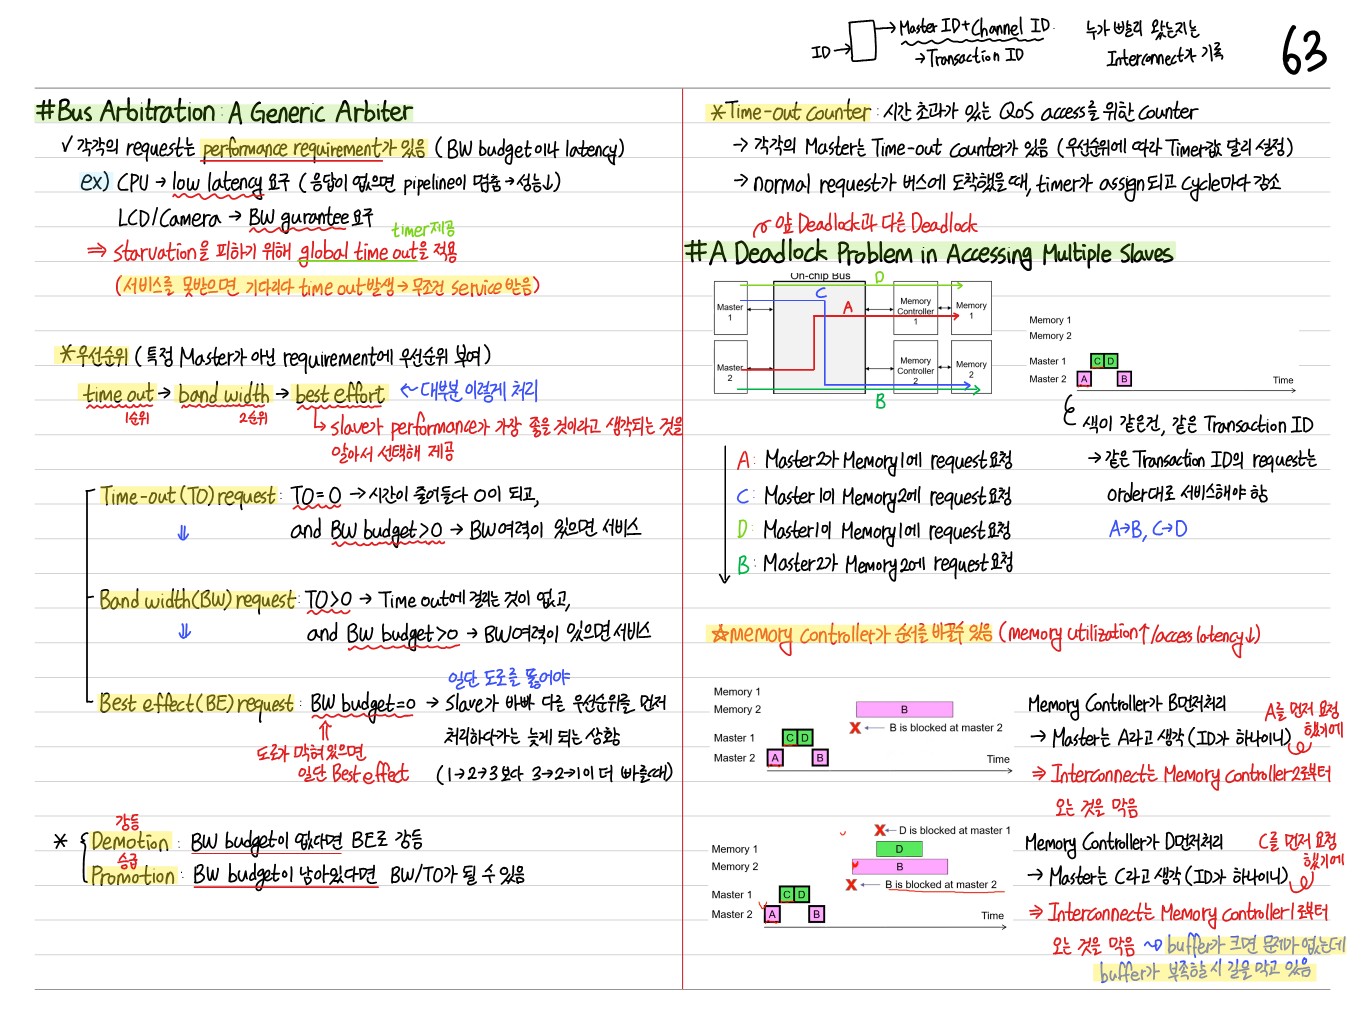 ID → Master ID+Channel ID
→ Transaction ID
누가 빨리 왔는지는
Interconnect가 기록
63
#Bus Arbitration : A Generic Arbiter
✓ 각각의 request는 performance requirement가 있음 (BW budget이나 latency)
ex) CPU → low latency 요구 (응답이 없으면 pipeline이 멈춤→성능↓)
LCD/Camera → BW gurantee 요구
timer 제공
⇒ starvation을 피하기 위해 global time out을 적용
(서비스를 못받으면 기다리다 time out 발생→무조건 service 받음)
*우선순위 (특정 Master가 아닌 requirement에 우선순위 부여)
time out → band width → best effort ← 대부분 이렇게 처리
1순위 2순위
↳ slave가 performance가 가장 좋을 것이라고 생각되는 것을
알아서 선택해 제공
Time-out(TO) request : TO=0 → 시간이 줄어들다 0이 되고,
⇓ and BW budget>0 → BW여력이 있으면 서비스
Band width(BW) request : TO>0 → Time out에 걸리는 것이 없고,
⇓ and BW budget>0 → BW여력이 있으면 서비스
일단 도로를 뚫어야
Best effect(BE) request : BW budget=0 → Slave가 바빠 다른 우선순위를 먼저
처리하다가는 늦게 되는 상황
(1→2→3 보다 3→2→1이 더 빠를때)
도로가 막혀있으면
일단 Best effect
강등
* Demotion : BW budget이 없다면 BE로 강등
승급
Promotion : BW budget이 남아있다면 BW/TO가 될 수 있음
*Time-out counter : 시간 초과가 있는 QoS access를 위한 counter
→ 각각의 Master는 Time-out counter가 있음 (우선순위에 따라 Timer값 달리 설정)
→ normal request가 버스에 도착했을 때, timer가 assign되고 cycle마다 감소
앞 Deadlock과 다른 Deadlock
#A Deadlock Problem in Accessing Multiple Slaves
On-chip Bus
D
C
A
B
Master
1
Memory
Controller
1
Memory
1
Master
2
Memory
Controller
2
Memory
2
Memory 1
Memory 2
Master 1 C D
Master 2 A B
Time
색이 같은건, 같은 Transaction ID
→ 같은 Transaction ID의 request는
order대로 서비스해야 함
A→B, C→D
A : Master2가 Memory1에 request 요청
C : Master1이 Memory2에 request 요청
D : Master1이 Memory1에 request 요청
B : Master2가 Memory2에 request 요청
☆memory controller가 순서를 바꿀수 있음 (memory utilization↑/access latency↓)
Memory 1
Memory 2 B
X ← B is blocked at master 2
Master 1 C D
Master 2 A B
Time
Memory Controller가 B먼저처리
→ Master는 A라고 생각 (ID가 하나이니)
A를 먼저 요청
했기에
⇒ Interconnect는 Memory controller2로부터
오는 것을 막음
X ← D is blocked at master 1
Memory 1 D
Memory 2 B
X ← B is blocked at master 2
Master 1 C D
Master 2 A B
Time
Memory Controller가 D먼저처리
→ Master는 C라고 생각 (ID가 하나이니)
C를 먼저 요청
했기에
⇒ Interconnect는 Memory controller1로부터
오는 것을 막음 ~> buffer가 크면 문제가 없는데
buffer가 부족할 시 길을 막고 있음